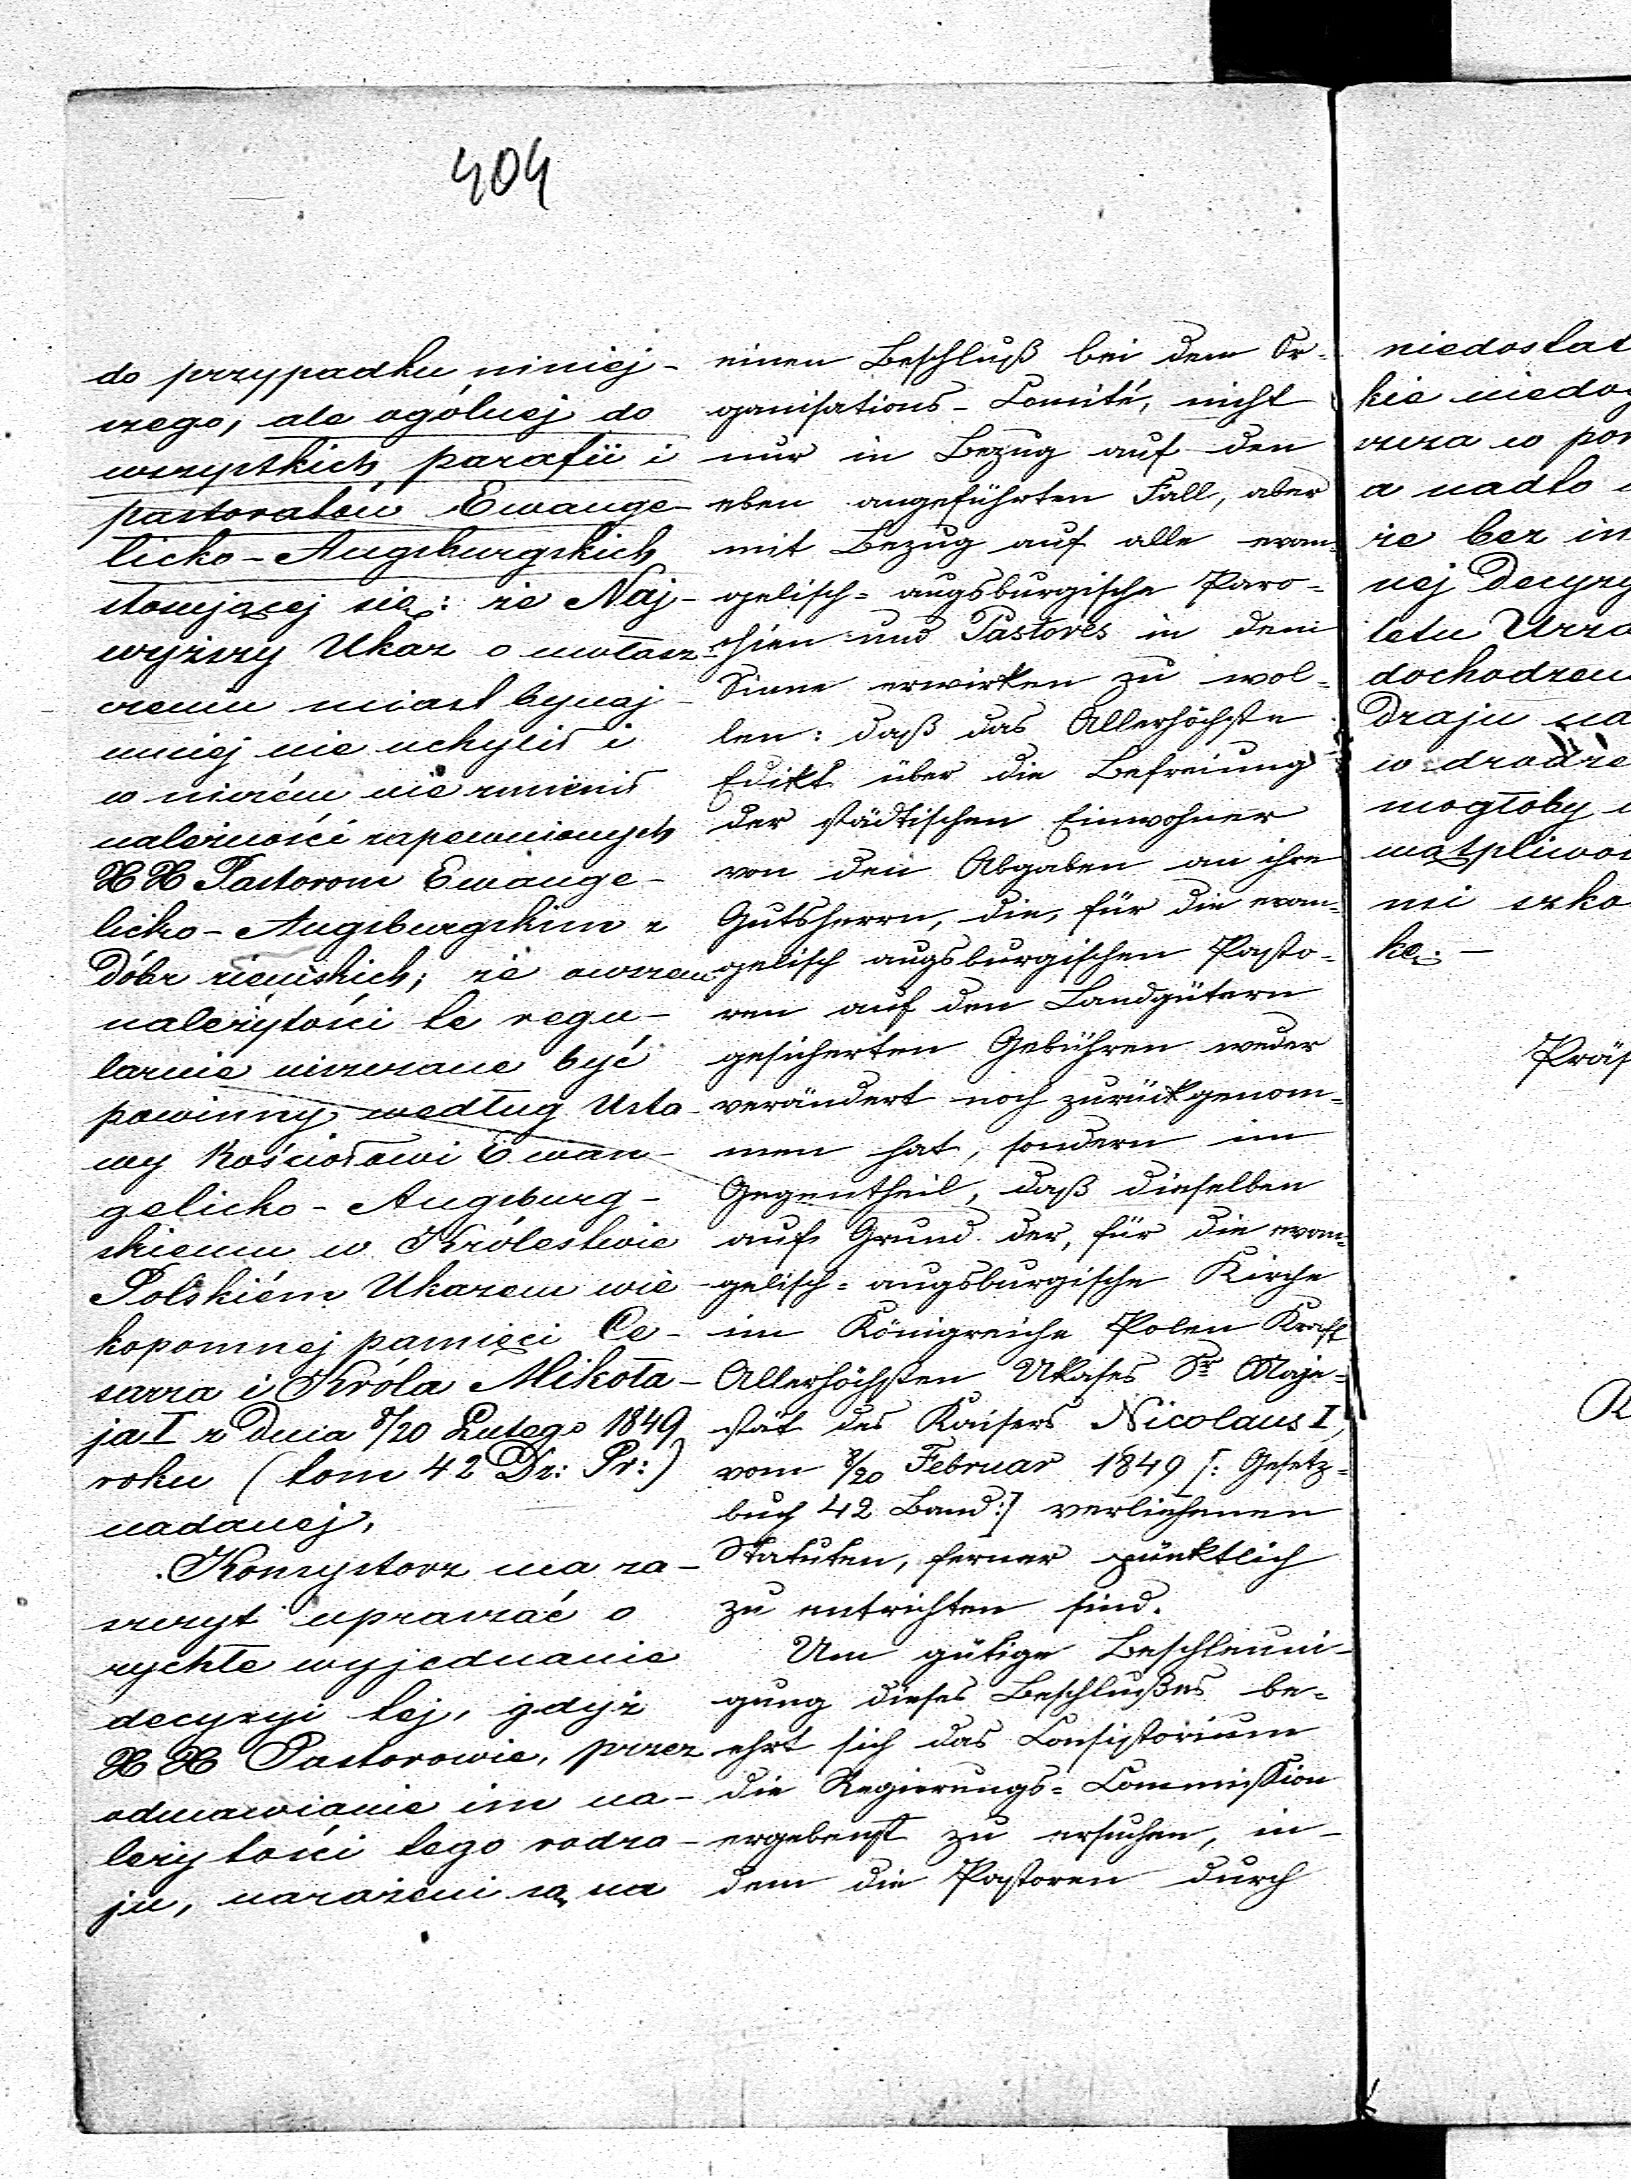 404
do przypadku niniej-
szego, ale ogólnej do
wszystkich parafii i
pastoratów Ewange-
licko-Augsburgskich
stosującej się: że Naj-
wyższy Ukaz o uwłasz-
czeniu miast bynaj-
mniej nie uchylił i
w niczém nie zmienił
należności zapewnionych
XX Pastorom Ewange-
licko-Augsburgskim z
Dóbr ziemskich; że owszem
należytości te regu-
larnie uiszczane być
powinny według Usta-
wy Kościołowi Ewan-
gelicko-Augsburg-
skiemu w Królestwie
Polskiém Ukazem wie-
kopomnej pamięci Ce-
sarza i Króla Mikoła-
ja I z dnia 8/20 Lutego 1849
roku (tom 42 Dz: Pr:)
nadanej.
Konsystorz ma za-
szczyt upraszać o
rychłe wyjednanie
decyzyi tej, gdyż
XX Pastorowie, przez
odmawianie im na-
leżytości tego rodza-
ju, narażeni są na
einen Beschluß bei dem Or-
ganisations-Comité, nicht
nur in Bezug auf den
eben angeführten Fall, aber
mit Bezug auf alle evan-
gelisch=augsburgische Paro=
chien und Pastores in dem
Sinne erwirken zu wol=
len: daß das Allerhöchste
Edikt über die Befreiung
der städtischen Einwohner
von den Abgaben an ihre
Gutsherrn, die, für die evan=
gelisch augsburgischen Pasto=
ren auf den Landgütern
gesicherten Gebühren weder
verändert noch zurückgenom=
men hat, sondern im
Gegentheil, daß dieselben
auf Grund der, für die evan=
gelisch=augsburgische Kirche
im Königreiche Polen Kraft
Allerhöchsten Ukases Sr Maje=
stät des Kaisers Nicolaus I,
vom 8/20 Februar 1849 [: Gesetz=
buch 42 Band:] verliehenen
Statuten, ferner pünktlich
zu entrichten sind.
Um gütige Beschleuni-
gung dieses Beschlußes be=
ehrt sich das Consistorium
die Regierungs=Commission
ergebenst zu ersuchen, in-
dem die Pastoren durch
niedostat
kie niedog
szcza w por
a nadto
że bez in
nej Decyzy
tetu Urzą
dochodzen
draju na
w drodze
mogłoby
wątpliwoś
mi szko
kę. –
Präs